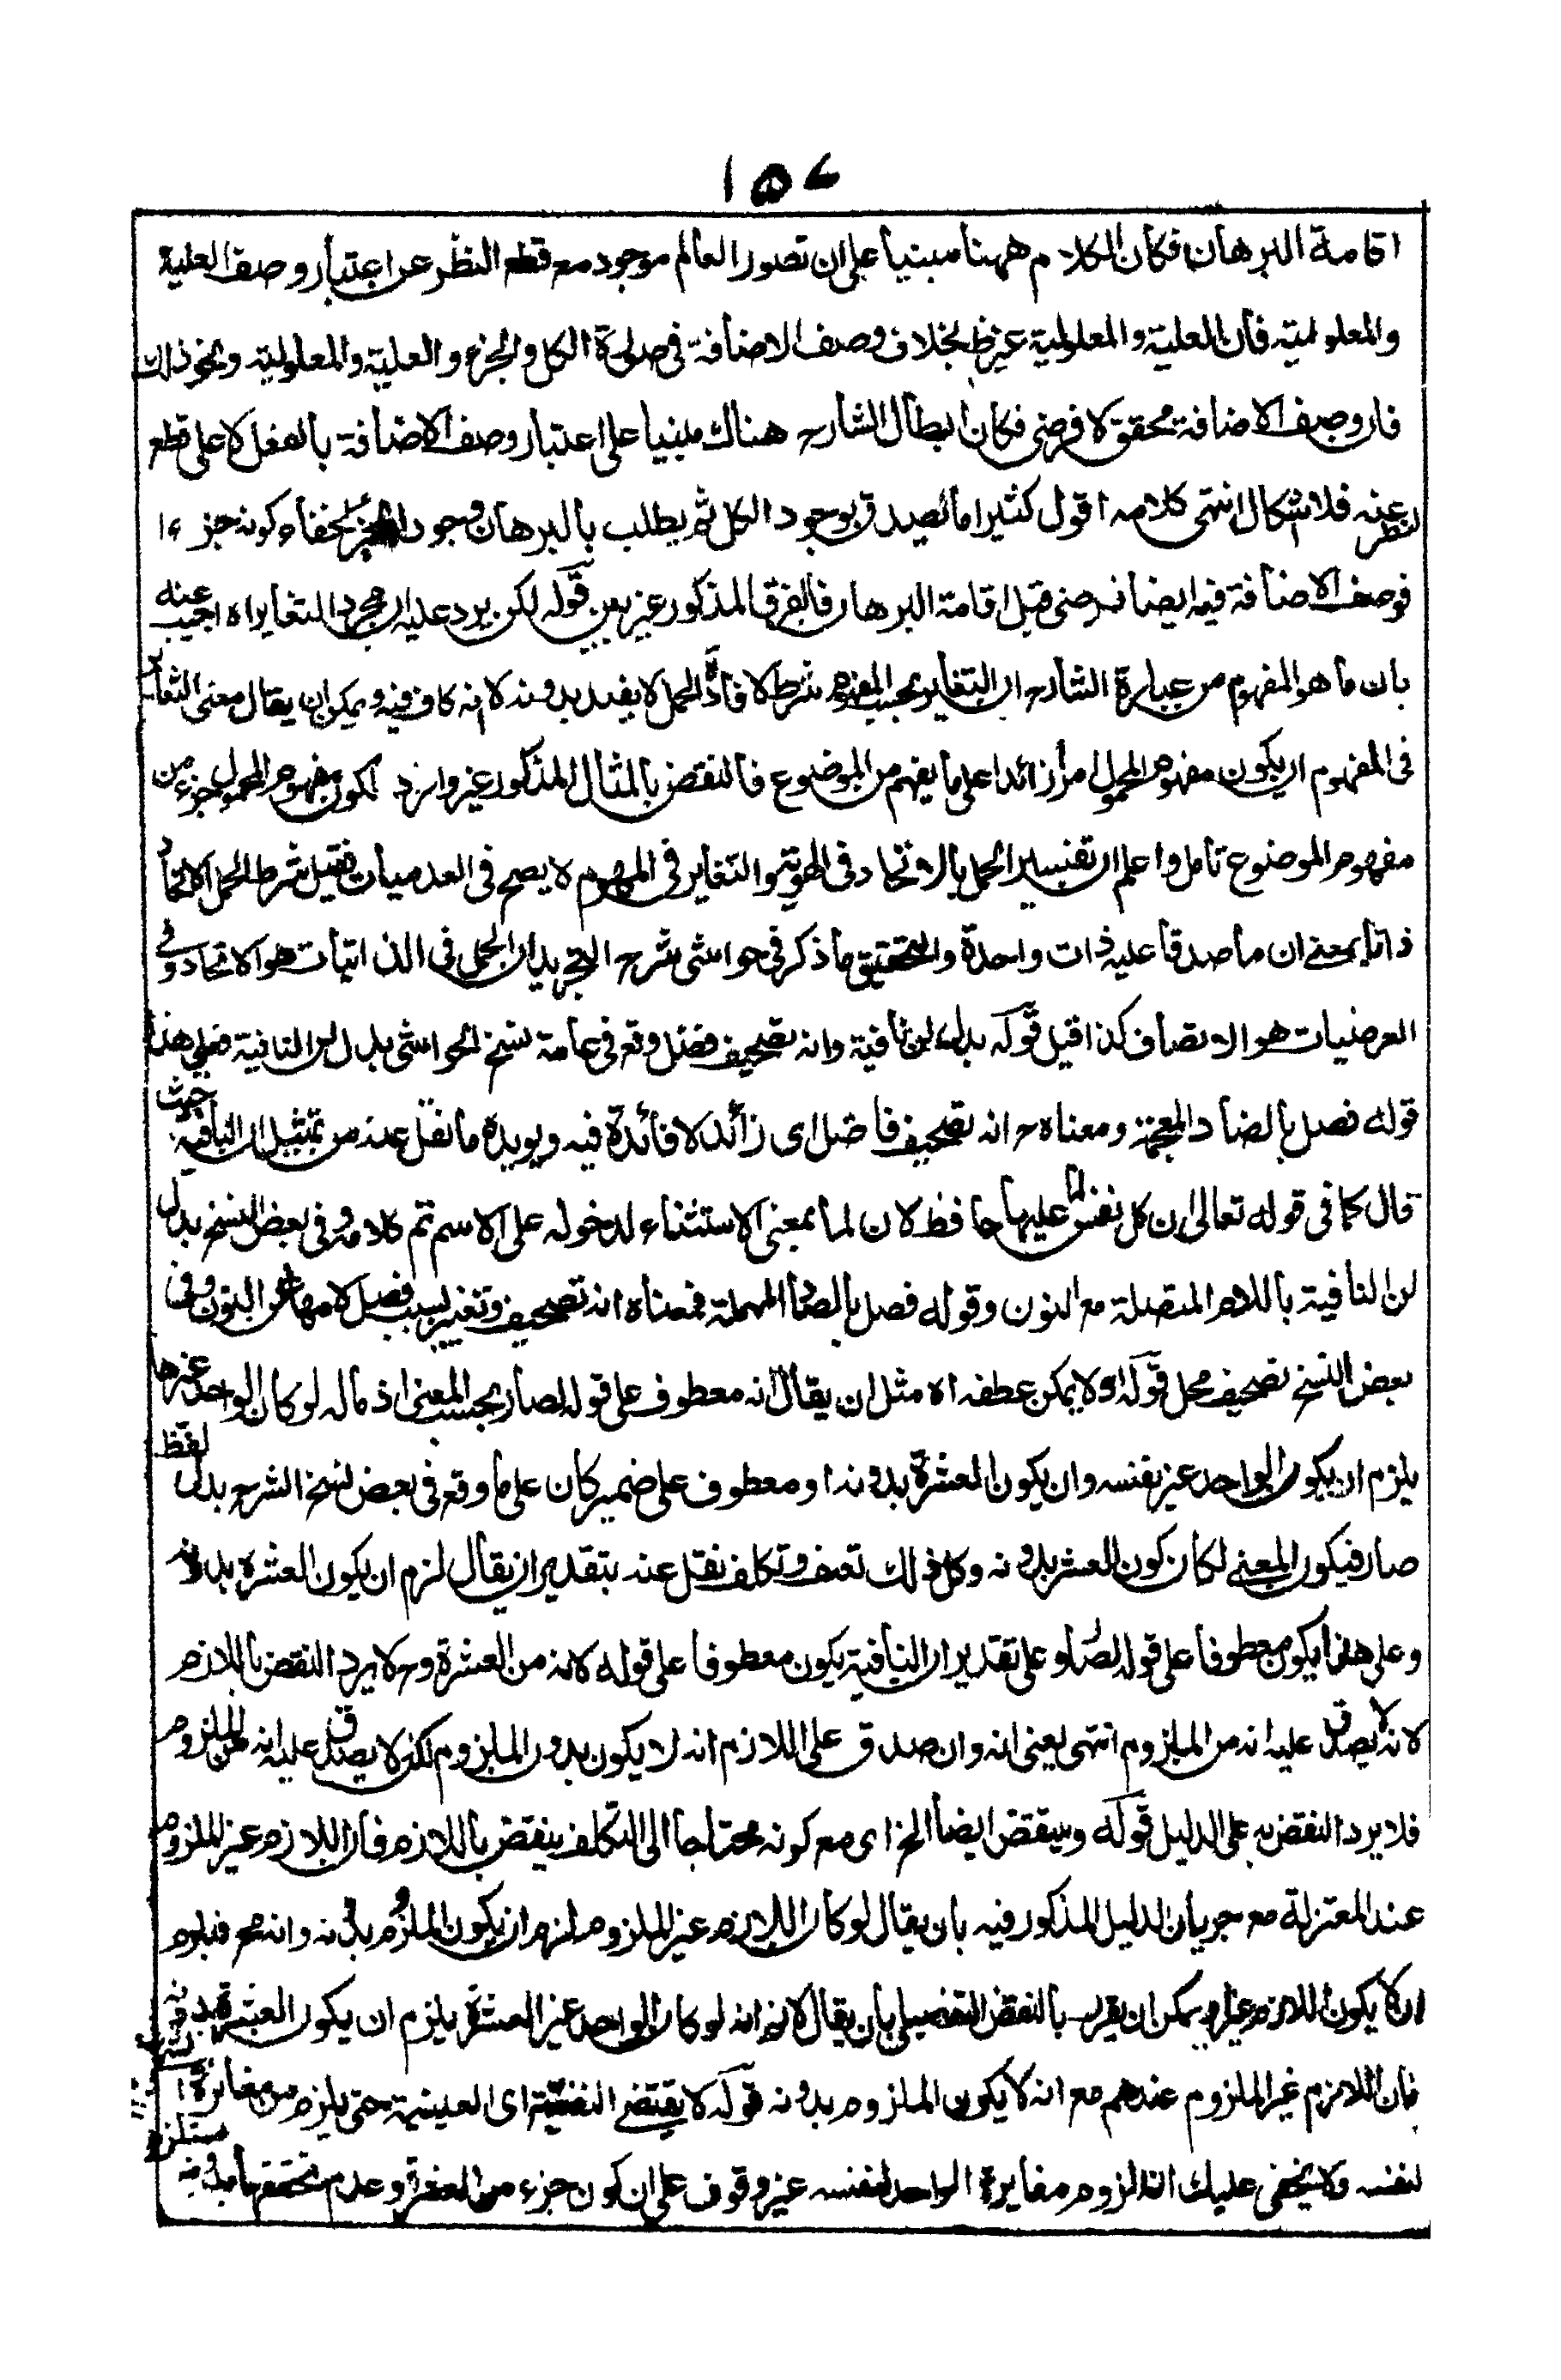 ١٥٧
اقامة البرهان فكان الكلام ههنا مبنيا على ان تصور العالم موجود مع قطع النظر عن اعتبار وصف العلية
والمعلولية فان العلية والمعلولية غير ظ بخلاف وصف الاضافة فى صورة الكل والجزء والعلية والمعلولية ونحو ذلك
فان وصف الاضافة محقق لا فرضى فكان ابطال الشارح هناك مبنيا على اعتبار وصف الاضافة بالفعل لا على قطع
النظر عنه فلا اشكال انتهى كلامه اقول كثيرا ما نصدق بوجود الكل ثم يطلب بالبرهان وجود الجزء لخفاء كونه جزءا
فوصف الاضافة فيه ايضا فرضى قبل اقامة البرهان فالفرق المذكور غير بين قوله لكن يرد عليه ان مجرد التغاير اه اجيب عنه
بان ما هو المفهوم من عبارة الشارح ان التغاير بحسب المفهوم شرط لافادة الحمل لا يفيد بدونه لا انه كاف فيه ويمكن ان يقال معنى التغاير
فى المفهوم ان يكون مفهوم المحمول امرا زائدا على ما يفهم من الموضوع فالنقض بالمثال المذكور غير وارد لكون مفهوم المحمول جزء من
مفهوم الموضوع تامل واعلم ان تفسير الحمل بالاتحاد فى الهوية والتغاير فى المفهوم لا يصح فى العدميات فقيل شرط الحمل الاتحاد
ذاتا بمعنى ان ما صدقا عليه ذات واحدة والتحقيق ما ذكر فى حواشى شرح التجريد ان الحمل فى الذاتيات هو الاتحاد وفى
العرضيات هو الاتصاف كذا قيل قوله بدل لن نافية وانه تصحيف فضل وقع فى عامة نسخ الحواشى بدل ان النافية فعلى هذا
قوله فضل بالضاد المعجمة ومعناه ح انه تصحيف فاضل اى زائد لا فائدة فيه ويويده ما نقل عنه من تمثيل ان النافية حيث
قال كما فى قوله تعالى ان كل نفس لما عليها حافظ لان لما بمعنى الاستثناء لدخوله على الاسم تم كلامه وفى بعض النسخ بدل
لن النافية باللام المتصلة مع النون وقوله فصل بالصاد المهملة فمعناه انه تصحيف وتغير بسبب فصل لامها عن النون وفى
بعض النسخ تصحيف محل قوله ولا يمكن عطفه اه مثل ان يقال انه معطوف على قوله لصار بحسب المعنى اذ مآله لو كان الواحد غيرها
يلزم ان يكون الواحد غير نفسه وان يكون العشرة بدونه او معطوف على ضمير كان على ما وقع فى بعض نسخ الشرح بدل لفظ
صار فيكون المعنى لكان كون العشر بدونه وكل ذلك تعسف وتكلف نقل عنه بتقدير ان يقال لزم ان يكون العشرة بدونه
وعلى هذا يكون معطوفا على قوله لصار وعلى تقدير ان النافية يكون معطوفا على قوله لانه من العشرة وح لا يرد النقض باللازم
لانه لا يصدق عليه انه من الملزوم انتهى يعنى انه وان صدق على اللازم انه لا يكون بدون الملزوم لكن لا يصدق عليه انه من الملزوم
فلا يرد النقض به على الدليل قوله وينتقض ايضا الخ اى مع كونه محتاجا الى التكلف ينقض باللازم فان اللازم غير الملزوم
عند المعتزلة مع جريان الدليل المذكور فيه بان يقال لو كان اللازم غير الملزوم لزم ان يكون الملزوم بدونه وانه مح فيلزم
ان لا يكون اللازم غيره ويمكن ان يقرر بالنقض التفصيلى بان يقال لانم انه لو كان الواحد غير العشرة يلزم ان يكون العشرة بدونه
فان اللازم غير الملزوم عندهم مع انه لا يكون الملزوم بدونه قوله لا يقتضى النفسية اى العينية حتى يلزم من مغايرته
لنفسه ولا يخفى عليك ان لزوم مغايرة الواحد لنفسه غير موقوف على ان كون جزء من العشرة وعدم تحققها بدونه مستلزم